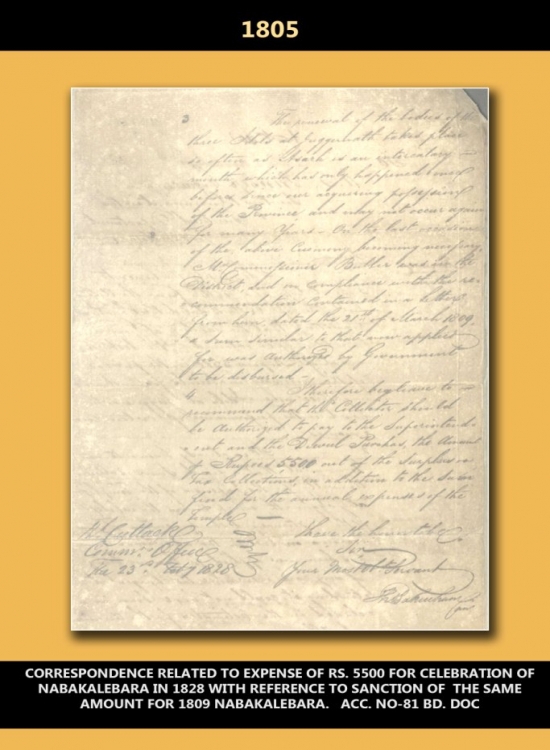 1805
3 The renewal of the bodies of the
three Idols at Juggernath takes place
as often as Assarh is an intercalary
month which has only happened once
before since our acquiring possession
of the Province and may not occur again
for many Years - On the last occasion
of the above Ceremony becoming necessary
Mr Commissioner Butler was in the
District and in compliance with the re-
commendation contained in a letter
from him dated the 21st of March 1809
a sum similar to that now applied
for was authorized by Government
to be disbursed -
4 Therefore beg leave to
recommend that the Collector should
be authorized to pay to the Superintend-
ent and the Dewul Purchas, the amount
of Rupees 5500 out of the Surplus
Tax Collections, in addition to the Sum
fixed for the annual expenses of the
Temple -
Cuttack
Commrs Office
The 23rd 1828
I have the honor to be
Sir
Your Most Obt Servant
CORRESPONDENCE RELATED TO EXPENSE OF RS. 5500 FOR CELEBRATION OF
NABAKALEBARA IN 1828 WITH REFERENCE TO SANCTION OF THE SAME
AMOUNT FOR 1809 NABAKALEBARA. ACC. NO-81 BD. DOC